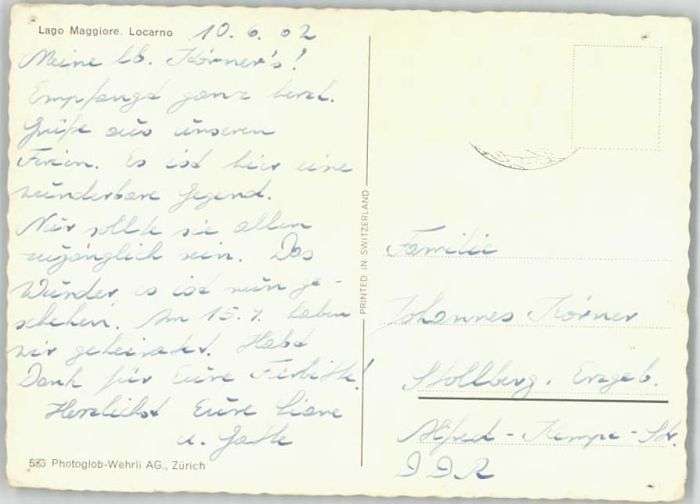 Lago Maggiore. Locarno 10. 6. 62
Meine lb. Körner's!
Empfangt ganz herzl.
Grüße aus unseren
Ferien. Es ist hier eine
wunderbare Gegend.
Nur sollte sie allen
zugänglich sein. Das
Wunder es ist nun ge-
schehen. Am 15.1. haben
wir geheiratet. Habt
Dank für Eure Fürbitte!
Herzlichst Eure
u. Gatte
560 Photoglob-Wehrli AG., Zürich
PRINTED IN SWITZERLAND
Familie
Johannes Körner
Stollberg. Erzgeb.
Alfred-Kempe-Str.
DDR